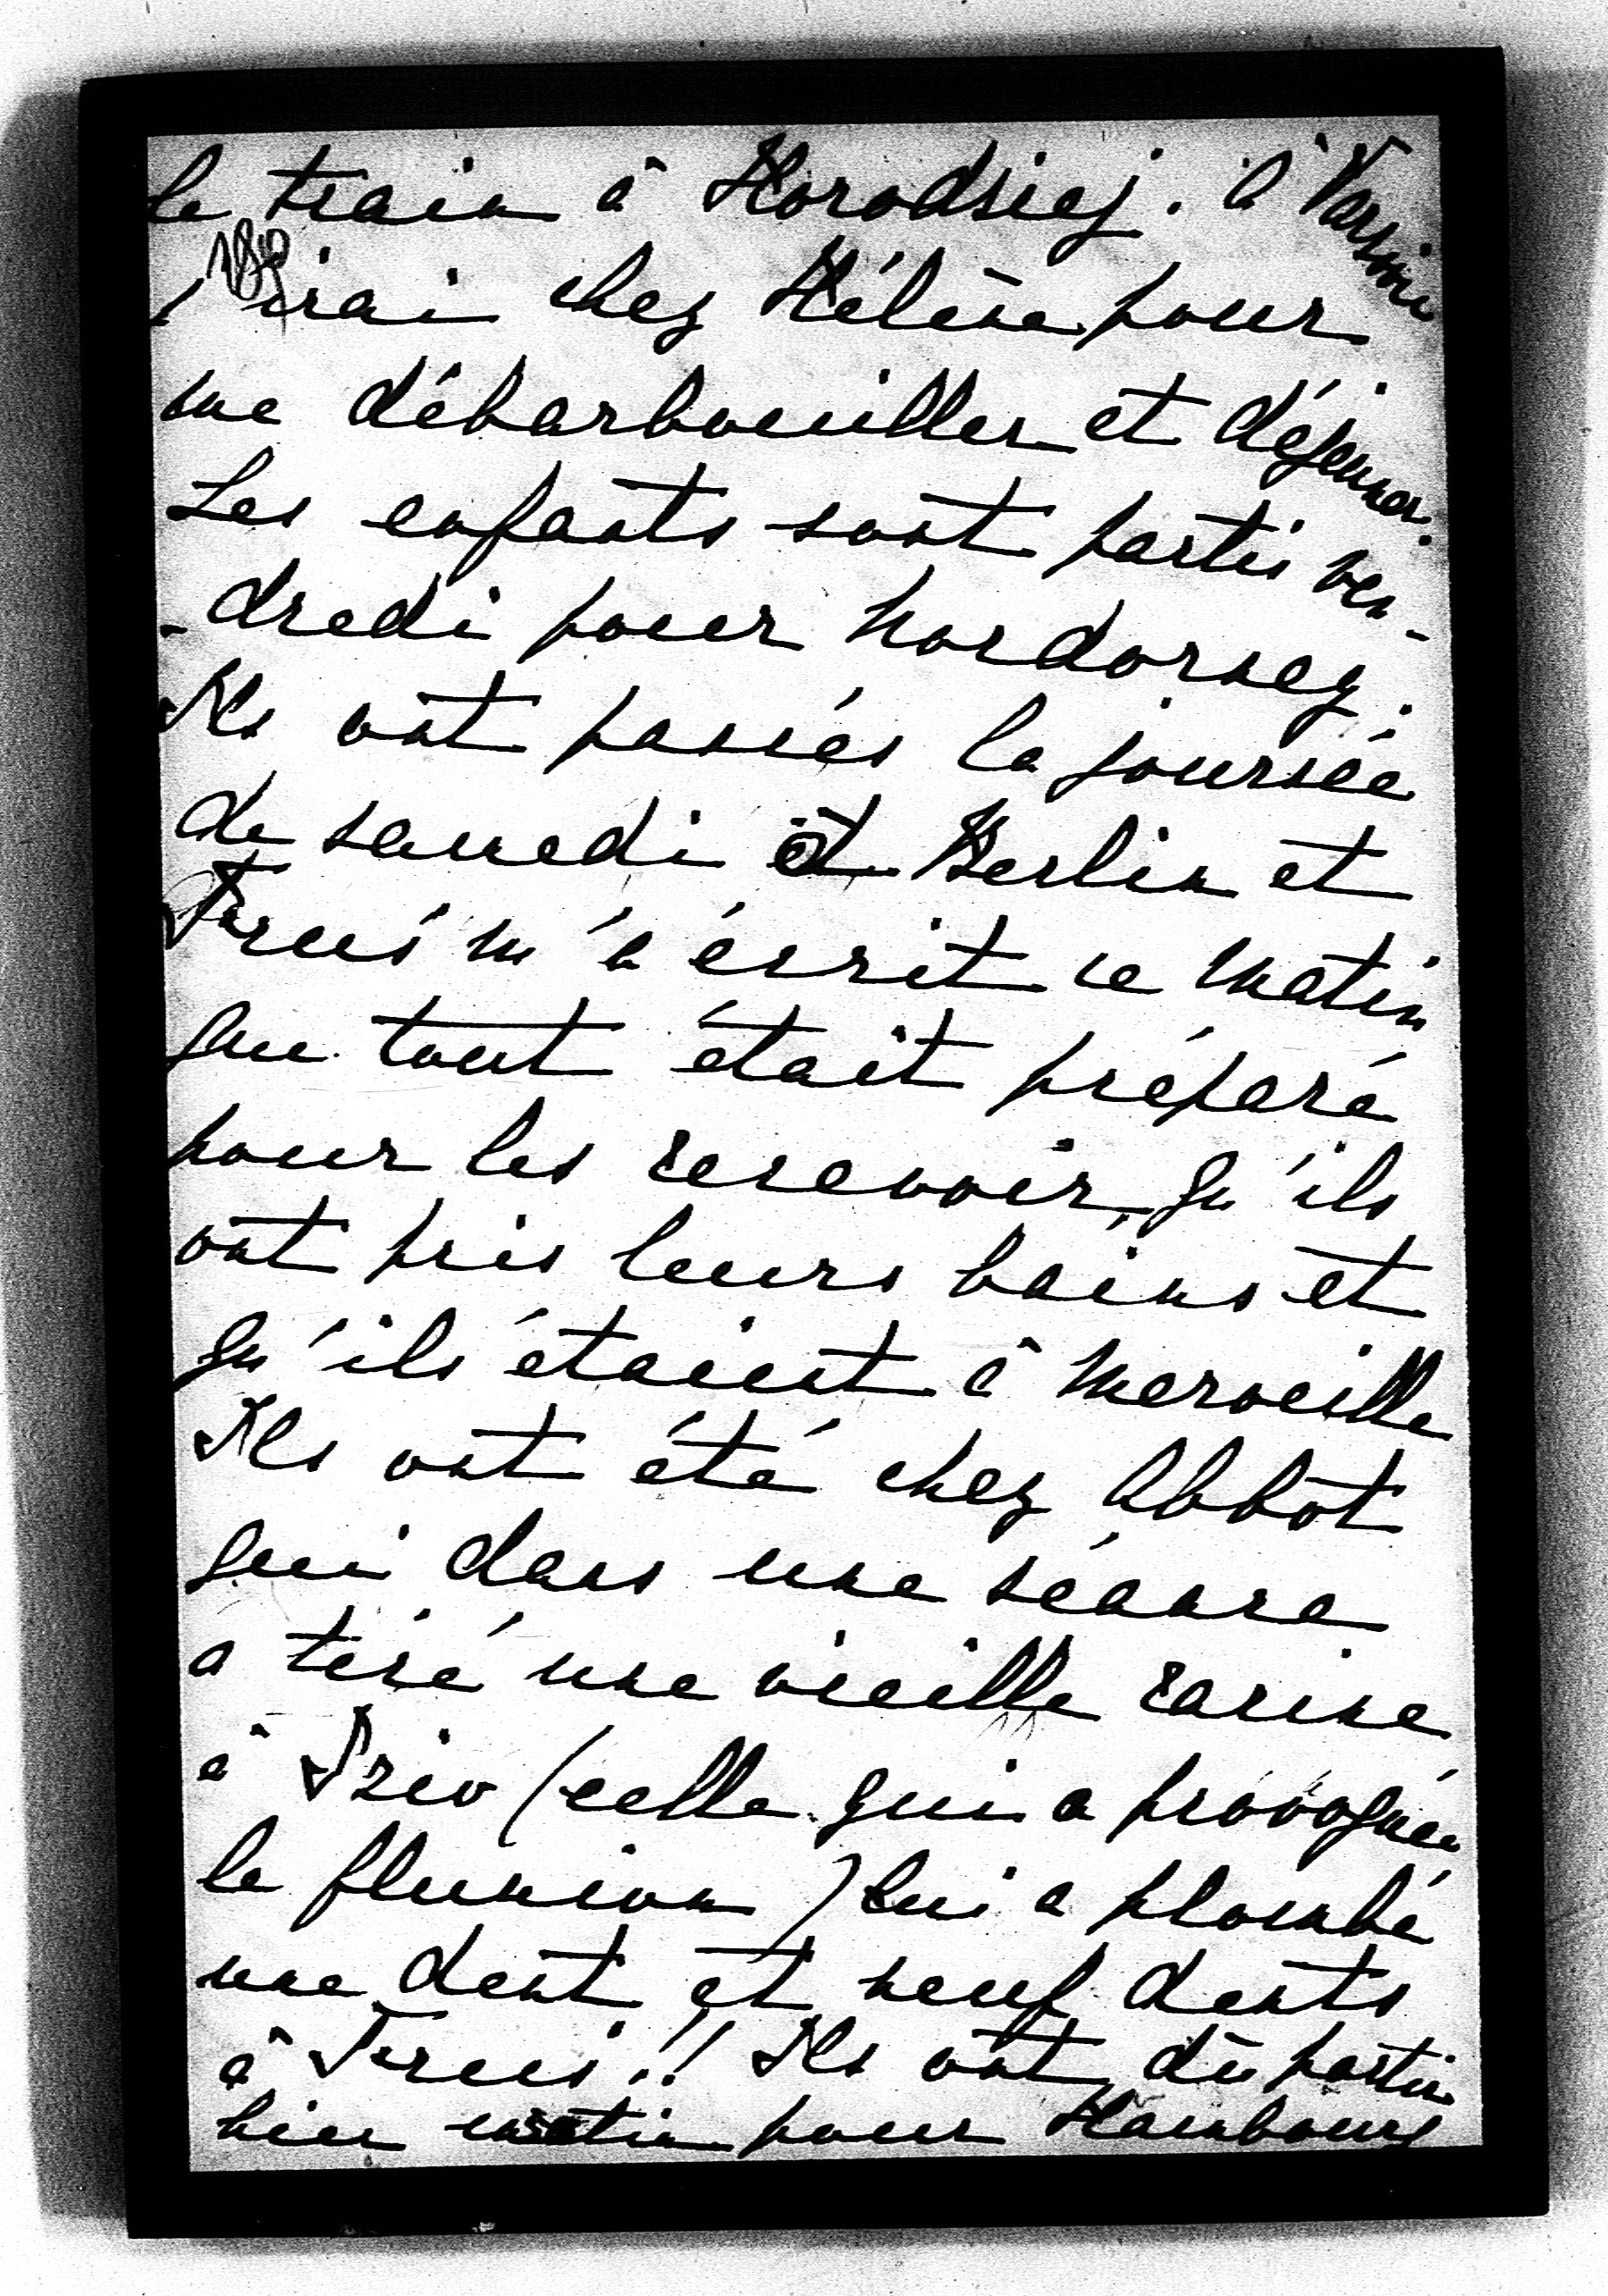 le train à Horodziej. à Varsovie
j'irai chez Hélène pour
me débarbouiller et déjeuner.
Les enfants sont partis ven-
-dredi pour Norderney.
Ils ont passés la journée
de samedi à Berlin et
m'a écrit ce matin
que tout était préparé
pour les recevoir, qu'ils
ont pris leurs bains et
qu'ils étaient à merveille
Ils ont été chez Abbot
qui dans une séance
a tiré une vieille racine
à (celle qui a provoquée
la fluxion) lui a plombé
une dent et neuf dents
à !! Ils ont dû partir
hier matin pour Hambourg